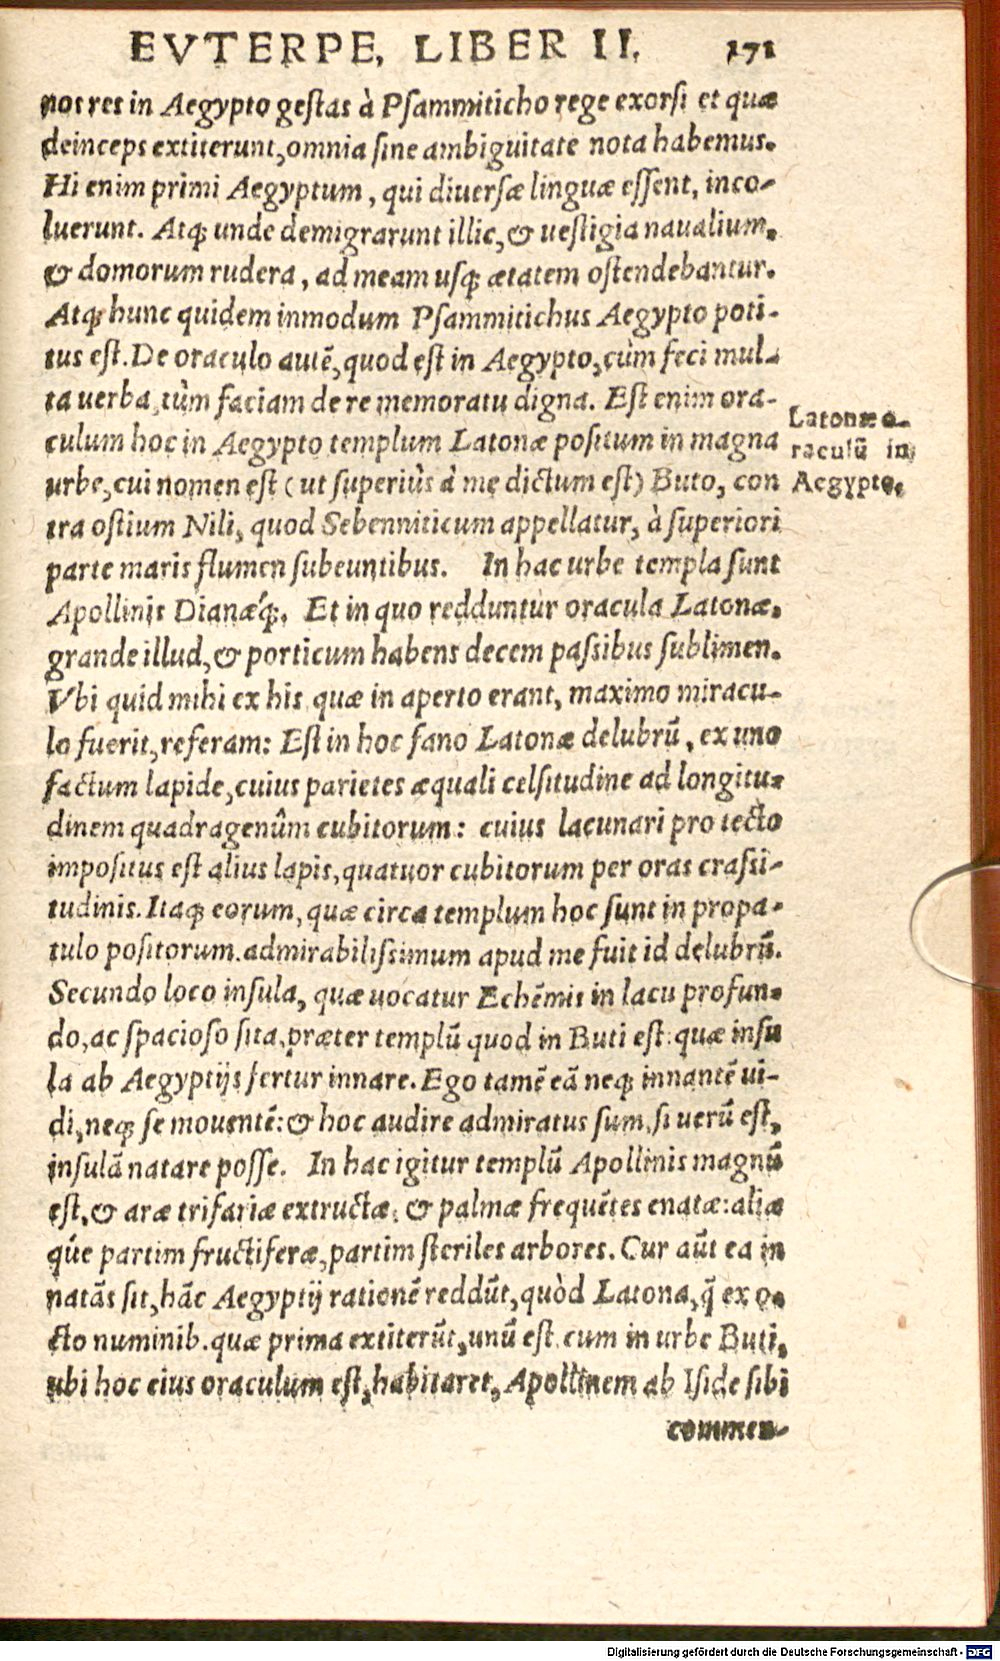 EVTERPE, LIBER II. 171
nos res in Aegypto gestas à Psammiticho rege exorsi et quæ
deinceps extiterunt, omnia sine ambiguitate nota habemus.
Hi enim primi Aegyptum, qui diuersæ linguæ essent, inco-
luerunt. Atq; unde demigrarunt illic, & uestigia naualium,
& domorum rudera, ad meam usq; ætatem ostendebantur.
Atq; hunc quidem inmodum Psammitichus Aegypto poti-
tus est. De oraculo autẽ, quod est in Aegypto, cùm feci mul-
ta uerba, tùm faciam de re memoratu digna. Est enim ora-
culum hoc in Aegypto templum Latonæ positum in magna
urbe, cui nomen est (ut superiùs à me dictum est) Buto, con
tra ostium Nili, quod Sebenniticum appellatur, à superiori
parte maris flumen subeuntibus. In hac urbe templa sunt
Apollinis Dianæq́;. Et in quo redduntur oracula Latonæ,
grande illud, & porticum habens decem passibus sublimen.
Vbi quid mihi ex his quæ in aperto erant, maximo miracu-
lo fuerit, referam: Est in hoc fano Latonæ delubrũ, ex uno
factum lapide, cuius parietes æquali celsitudine ad longitu-
dinem quadragenûm cubitorum: cuius lacunari pro tecto
impositus est alius lapis, quatuor cubitorum per oras crassi-
tudinis. Itaq; eorum, quæ circa templum hoc sunt in propa-
tulo positorum. admirabilissimum apud me fuit id delubrũ.
Secundo loco insula, quæ uocatur Echẽmis in lacu profun-
do, ac spacioso sita, præter templũ quod in Buti est: quæ insu
la ab Aegyptijs fertur innare. Ego tamẽ eã neq; innantẽ ui-
di, neq; se mouentẽ: & hoc audire admiratus sum, si uerũ est,
insulã natare posse. In hac igitur templũ Apollinis magnũ
est, & aræ trifariæ extructæ, & palmæ frequẽtes enatæ: aliæ
q́ue partim fructiferæ, partim steriles arbores. Cur aũt ea in
natãs sit, hãc Aegyptij rationẽ reddũt, quòd Latona, q̃ ex o-
cto numinib. quæ prima extiterũt, unũ est. cum in urbe Buti,
ubi hoc eius oraculum est, habitaret, Apollinem ab Iside sibi
commen-
Latonæ o-
raculũ in
Aegypto.
Digitalisierung gefördert durch die Deutsche Forschungsgemeinschaft - DFG